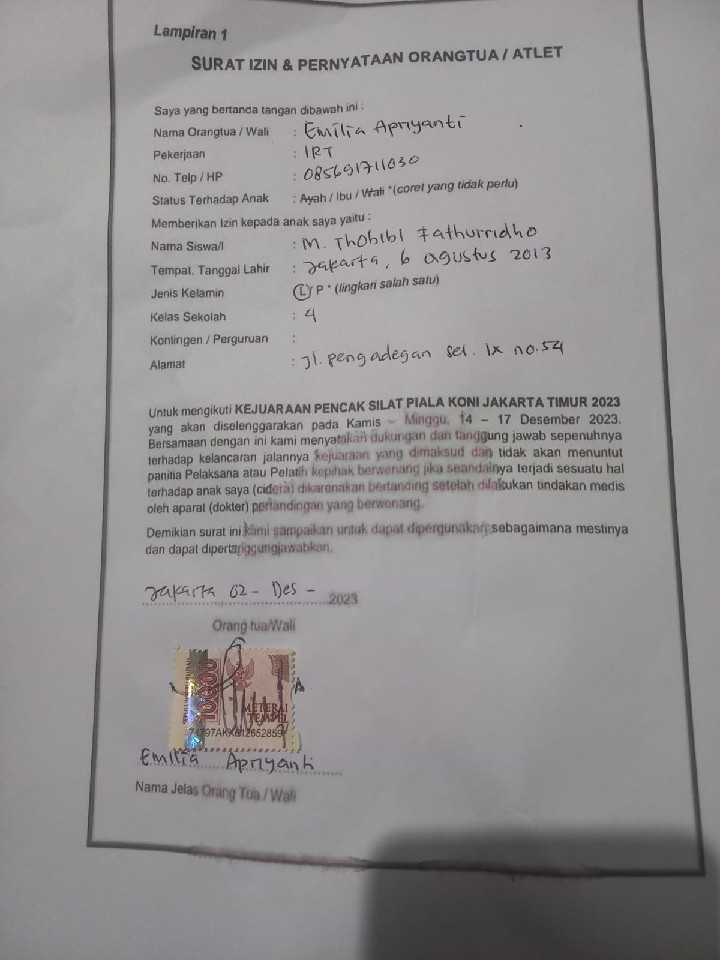 Lampiran 1
SURAT IZIN & PERNYATAAN ORANGTUA / ATLET
Saya yang bertanda tangan dibawah ini :
Nama Orangtua / Wali : Emilia Apriyanti
Pekerjaan : IRT
No. Telp / HP : 085691711030
Status Terhadap Anak : Ayah / Ibu / Wali *(coret yang tidak perlu)
Memberikan Izin kepada anak saya yaitu :
Nama Siswa/I : M. Thobibi Fathurridho
Tempat, Tanggal Lahir : Jakarta, 6 agustus 2013
Jenis Kelamin : L / P * (lingkari salah satu)
Kelas Sekolah : 4
Kontingen / Perguruan :
Alamat : Jl. pengadegan sel. IX no.54
Untuk mengikuti KEJUARAAN PENCAK SILAT PIALA KONI JAKARTA TIMUR 2023
yang akan diselenggarakan pada Kamis – Minggu, 14 – 17 Desember 2023.
Bersamaan dengan ini kami menyatakan dukungan dan tanggung jawab sepenuhnya
terhadap kelancaran jalannya kejuaraan yang dimaksud dan tidak akan menuntut
panitia Pelaksana atau Pelatih kepihak berwenang jika seandainya terjadi sesuatu hal
terhadap anak saya (cidera) dikarenakan bertanding setelah dilakukan tindakan medis
oleh aparat (dokter) pertandingan yang berwenang.
Demikian surat ini kami sampaikan untuk dapat dipergunakan sebagaimana mestinya
dan dapat dipertanggungjawabkan.
Jakarta 02 - Des - 2023
Orang tua/Wali
10000
METERAI
TEMPEL
Emilia Apriyanti
Nama Jelas Orang Tua / Wali